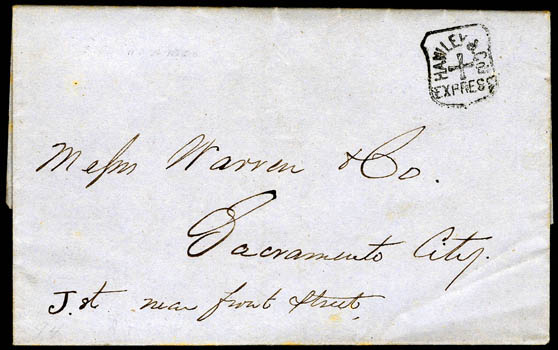 HAWLEY & CO'S
EXPRESS
Messrs Warren & Co.
Sacramento City.
J. st. near front Street